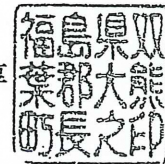 福島県双
葉郡大熊
町長之印